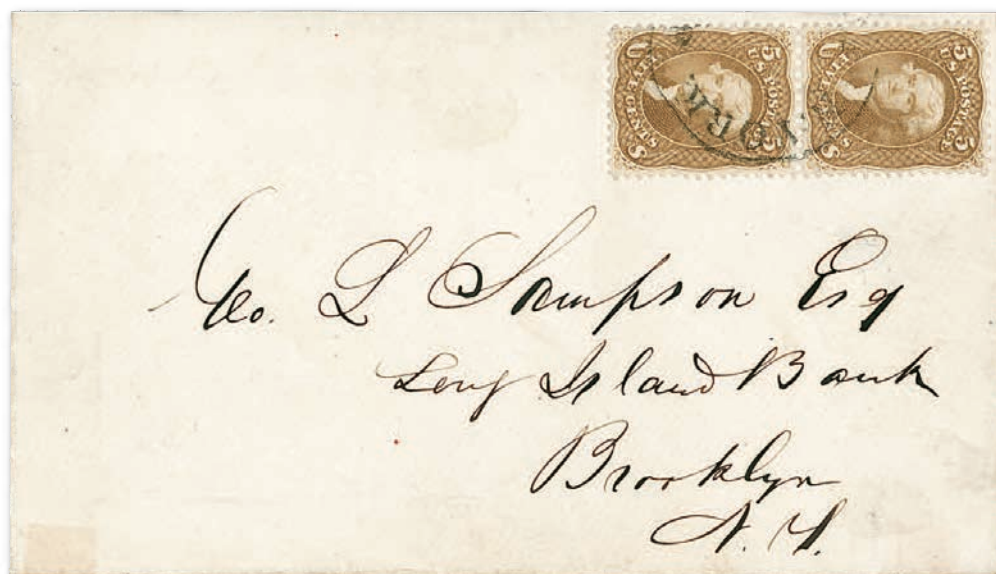 U 5
U.S. POSTAGE
FIVE CENTS
S 5
U 5
U.S. POSTAGE
FIVE CENTS
S 5
YORK
Geo. L Sampson Esq
Long Island Bank
Brooklyn
N. Y.